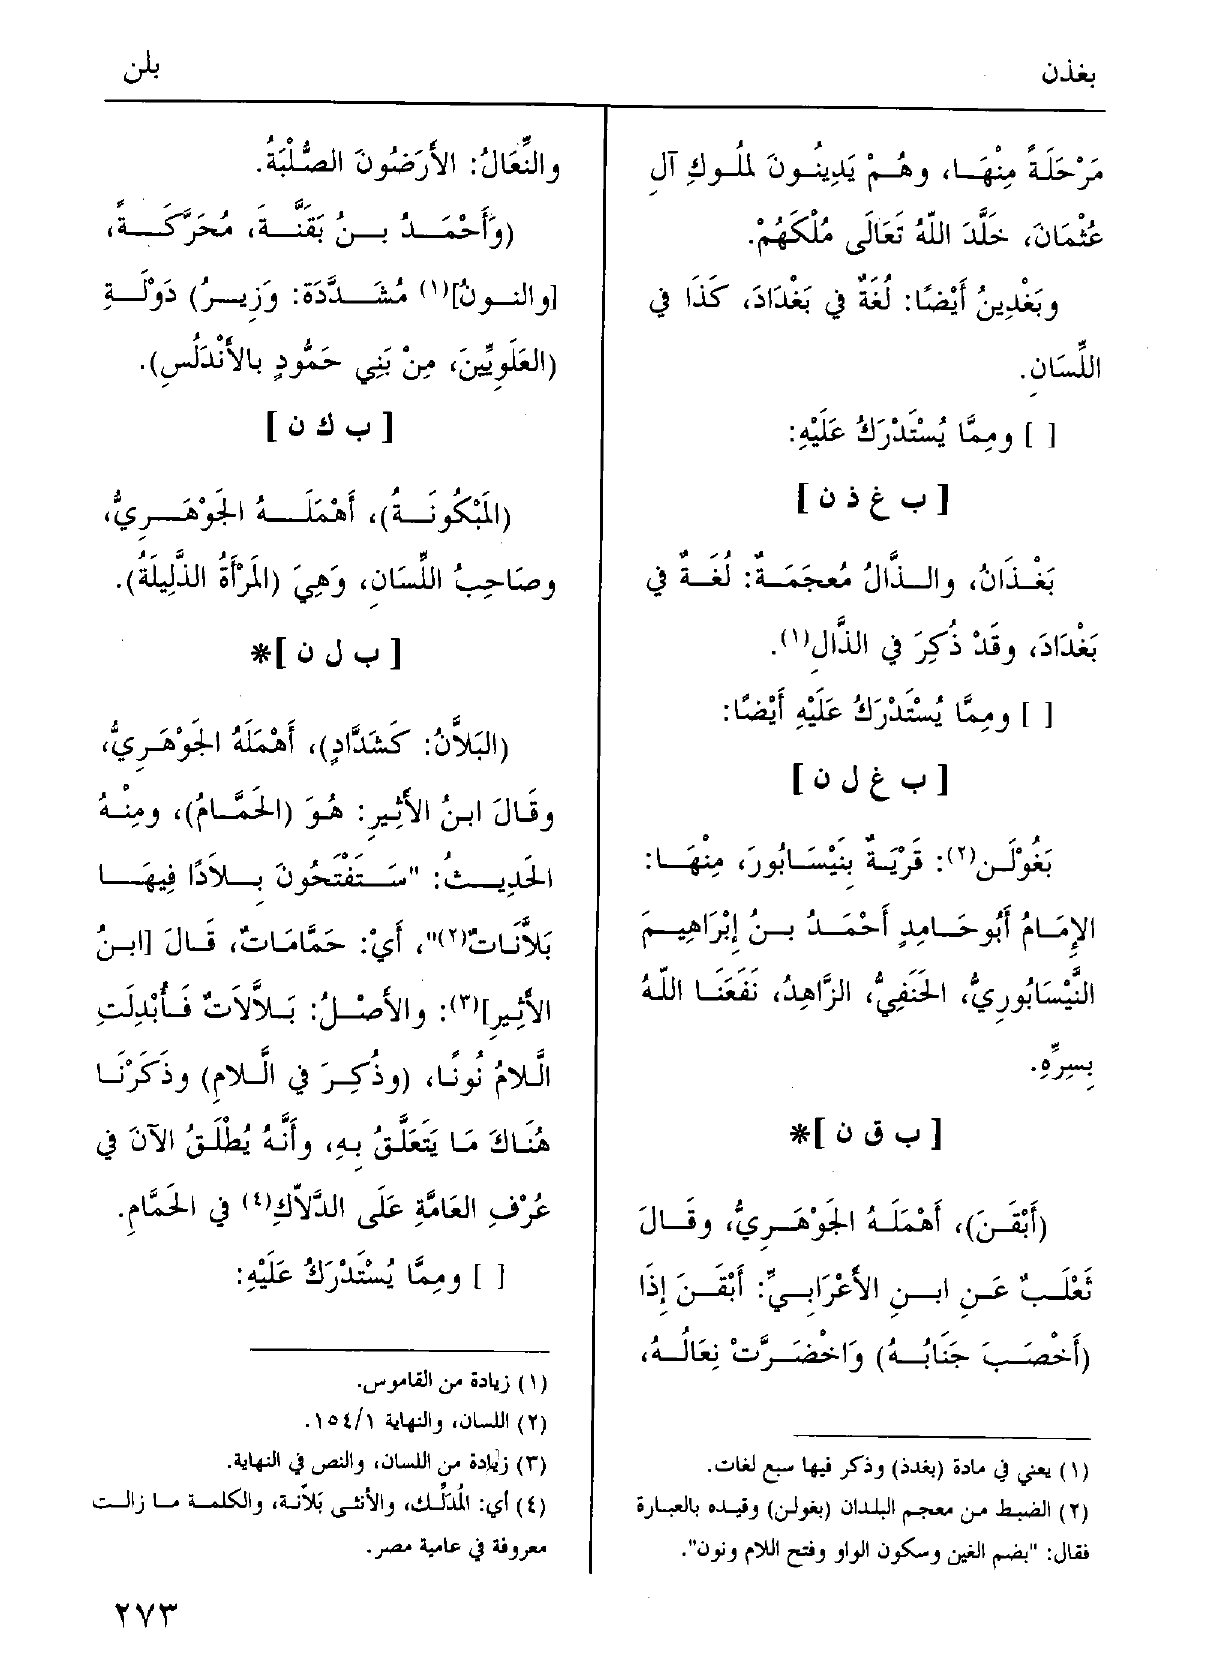 بغذن
بلن
مَرْحَلَةً مِنْهَا، وهُمْ يَدِينُونَ لمُلوكِ آلِ
عُثْمَانَ، خَلَّدَ اللّهُ تَعَالَى مُلْكَهُمْ.
وبَغْدِينُ أَيْضًا: لُغَةٌ فِي بَغْدَادَ، كَذَا فِي
اللِّسَانِ.
[ ] ومِمَّا يُسْتَدْرَكُ عَلَيْهِ:
[ ب غ ذ ن ]
بَغْذَانُ، والذَّالُ مُعجَمَةٌ: لُغَةٌ فِي
بَغْدَادَ، وقَدْ ذُكِرَ فِي الذَّالِ(١).
[ ] ومِمَّا يُسْتَدْرَكُ عَلَيْهِ أَيْضًا:
[ ب غ ل ن ]
بَغُولَن(٢): قَرْيَةٌ بِنَيْسَابُورَ، مِنْهَا:
الإِمَامُ أَبُو حَامِدٍ أَحْمَدُ بنُ إِبْرَاهِيمَ
النَّيْسَابُورِيُّ، الحَنَفِيُّ، الزَّاهِدُ، نَفَعَنَا اللّهُ
بِسِرِّهِ.
[ ب ق ن ]*
(أَبْقَنَ)، أَهْمَلَهُ الجَوْهَرِيُّ، وقَالَ
ثَعْلَبٌ عَنِ ابنِ الأَعْرَابِيِّ: أَبْقَنَ إِذَا
(أَخْصَبَ جَنَابُهُ) وَاخْضَرَّتْ نِعَالُهُ،
(١) يعني في مادة (بغدذ) وذكر فيها سبع لغات.
(٢) الضبط من معجم البلدان (بغولن) وقيده بالعبارة
فقال: "بضم الغين وسكون الواو وفتح اللام ونون".
والنِّعَالُ: الأَرَضُونَ الصُّلْبَةُ.
(وَأَحْمَدُ بنُ بَقَنَّةَ، مُحَرَّكَةً،
[والنونُ](١) مُشَدَّدَة: وَزِيرُ) دَوْلَةِ
(العَلَوِيِّينَ، مِنْ بَنِي حَمُّودٍ بالأَنْدَلُسِ).
[ ب ك ن ]
(المَبْكُونَةُ)، أَهْمَلَهُ الجَوْهَرِيُّ،
وصَاحِبُ اللِّسَانِ، وَهِيَ (المَرْأَةُ الذَّلِيلَةُ).
[ ب ل ن ]*
(البَلاَّنُ: كَشَدَّادٍ)، أَهْمَلَهُ الجَوْهَرِيُّ،
وقَالَ ابنُ الأَثِيرِ: هُوَ (الحَمَّامُ)، ومِنْهُ
الحَدِيثُ: "سَتَفْتَحُونَ بِلاَدًا فِيهَا
بَلاَّنَاتٌ(٢)"، أَيْ: حَمَّامَاتٌ، قَالَ [ابنُ
الأَثِيرِ](٣): والأَصْلُ: بَلاَّلَاتٌ فَأُبْدِلَتِ
الَّلامُ نُونًا، (وذُكِرَ فِي الَّلامِ) وذَكَرْنَا
هُنَاكَ مَا يَتَعَلَّقُ بِهِ، وأَنَّهُ يُطْلَقُ الآنَ فِي
عُرْفِ العَامَّةِ عَلَى الدَّلاَّكِ(٤) فِي الحَمَّامِ.
[ ] ومِمَّا يُسْتَدْرَكُ عَلَيْهِ:
(١) زيادة من القاموس.
(٢) اللسان، والنهاية ١/١٥٤.
(٣) زيادة من اللسان، والنص في النهاية.
(٤) أي: المُدَلِّك، والأنثى بَلاَّنة، والكلمة ما زالت
معروفة في عامية مصر.
٢٧٣